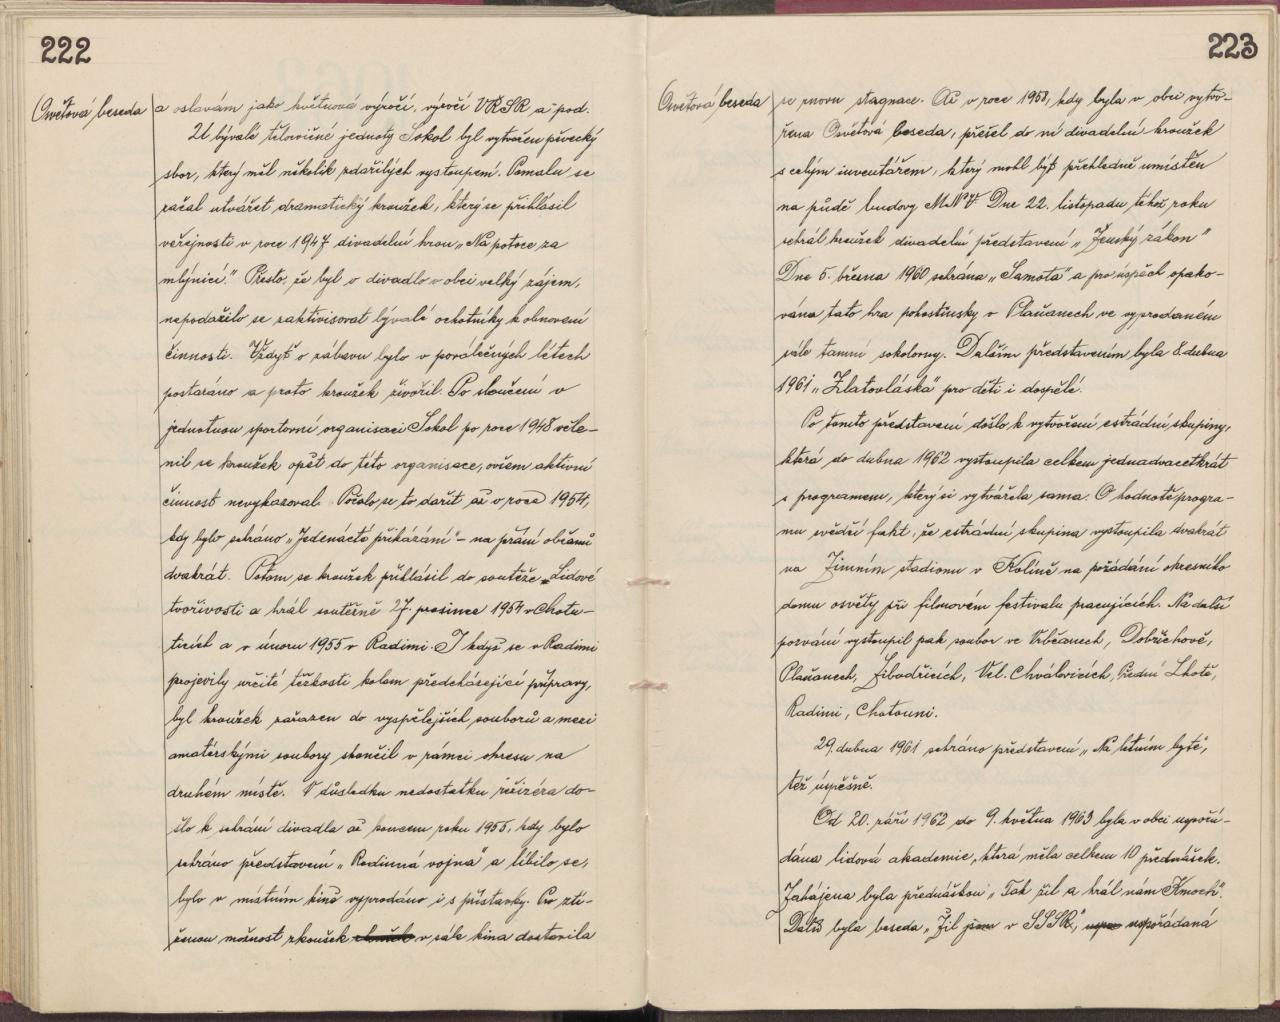 222
Osvětová beseda
a oslavám jako květnová výročí, výročí VŘSR a pod.
U bývalé tělocvičné jednoty Sokol byl vytvořen pěvecký
sbor, který měl několik zdařilých vystoupení. Pomalu se
začal utvářet dramatický kroužek, který se přihlásil
veřejnosti v roce 1947 divadelní hrou „Na potoce za
mlýnicí." Přesto, že byl o divadlo v obci velký zájem,
nepodařilo se zaktivisovat bývalé ochotníky k obnovení
činnosti. Vždyť o zábavu bylo v poválečných létech
postaráno a proto kroužek živořil. Po sloučení v
jednotnou sportovní organisaci Sokol po roce 1948 včle-
nil se kroužek opět do této organisace, ovšem aktivní
činnost nevykazoval. Počalo se to dařit až v roce 1954,
kdy bylo sehráno „Jedenácté přikázání" - na přání občanů
dvakrát. Potom se kroužek přihlásil do soutěže „Lidové
tvořivosti a hrál soutěžně 27. prosince 1954 v Chotu-
ticích a v únoru 1955 v Radimi. I když se v Radimi
projevily určité těžkosti kolem předcházející přípravy,
byl kroužek zařazen do vyspělejších souborů a mezi
amatérskými soubory skončil v rámci okresu na
druhém místě. V důsledku nedostatku režiséra do-
šlo k sehrání divadla až koncem roku 1955, kdy bylo
sehráno představení „Rodinná vojna" a líbilo se,
bylo v místním kině vyprodáno i s přístavky. Pro ztí-
ženou možnost zkoušek v sále kina dostavila
223
Osvětová beseda
se znovu stagnace. Až v roce 1958, kdy byla v obci vytvo-
řena Osvětová beseda, přešel do ní divadelní kroužek
s celým inventářem, který mohl být přehledně umístěn
na půdě budovy M.N.V. Dne 22. listopadu téhož roku
sehrál kroužek divadelní představení „Ženský zákon"
Dne 5. března 1960 sehrána „Samota" a pro úspěch opako-
vána tato hra pohostinsky v Plaňanech ve vyprodaném
sále tamní sokolovny. Dalším představením byla 8. dubna
1961 „Zlatovláska" pro děti i dospělé.
Po tomto představení došlo k vytvoření estrádní skupiny,
která do dubna 1962 vystoupila celkem jednadvacetkrát
s programem, který si vytvářela sama. O hodnotě progra-
mu svědčí fakt, že estrádní skupina vystoupila dvakrát
na Zimním stadionu v Kolíně na požádání okresního
domu osvěty při filmovém festivalu pracujících. Na další
pozvání vystoupil pak soubor ve Vrbčanech, Dobřichově,
Plaňanech, Žibodřicích, Vel. Chvalovicích, Přední Lhotě,
Radimi, Chotouni.
29. dubna 1961 sehráno představení „Na letním bytě",
též úspěšně.
Od 20. září 1962 do 9. května 1963 byla v obci uspořá-
dána lidová akademie, která měla celkem 10 přednášek.
Zahájena byla přednáškou „Tak žil a hrál nám Kmoch".
Další byla beseda „Žil jsem v SSSR", uspořádaná